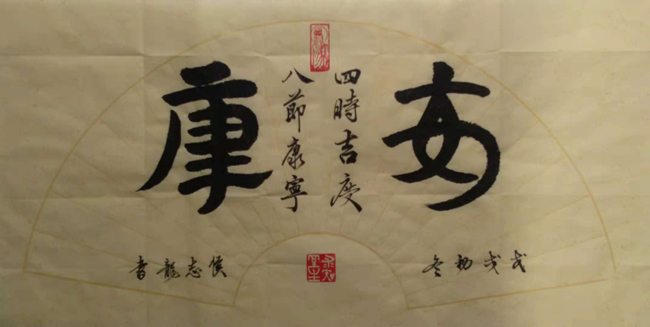 安康
四時吉慶
八節康寧
戊戌初冬
侯志龍書